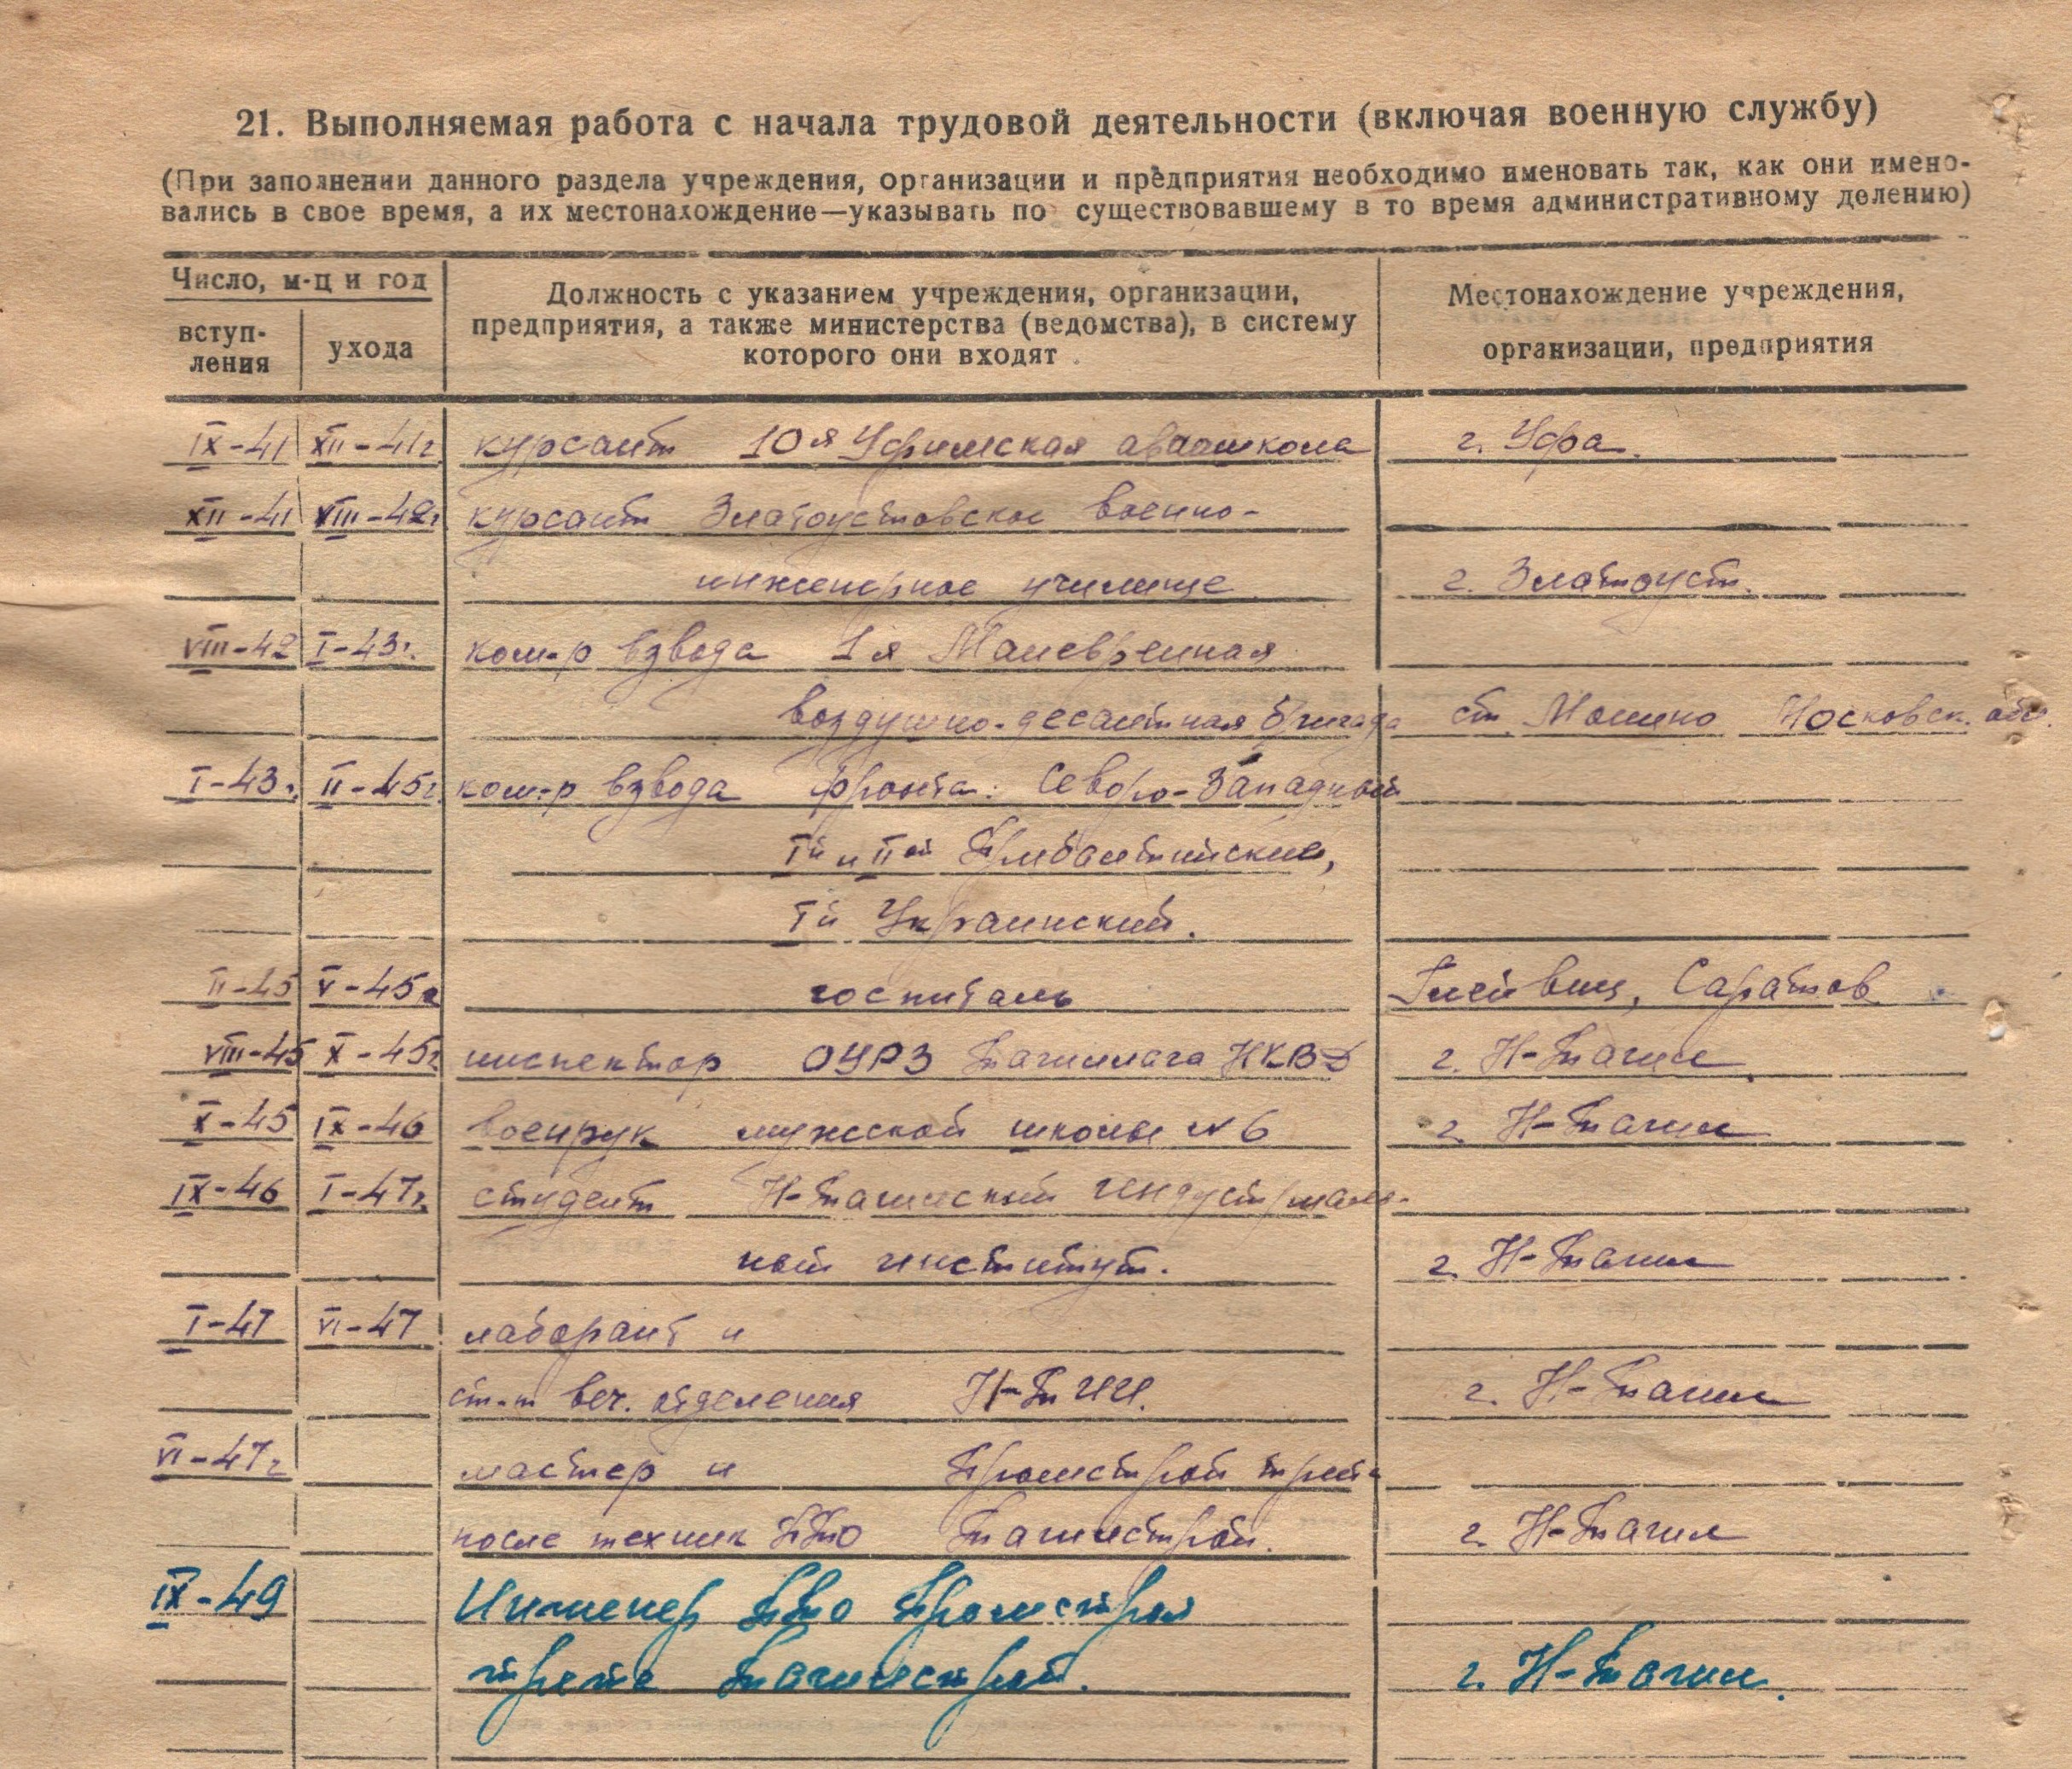 21. Выполняемая работа с начала трудовой деятельности (включая военную службу)
(При заполнении данного раздела учреждения, организации и предприятия необходимо именовать так, как они имено-
вались в свое время, а их местонахождение—указывать по существовавшему в то время административному делению)
Число, м-ц и год
вступ-
ления
ухода
Должность с указанием учреждения, организации,
предприятия, а также министерства (ведомства), в систему
которого они входят
Местонахождение учреждения,
организации, предприятия
IX-41 XII-41г курсант 10я Уфимская авиашкола г. Уфа.
XII-41 VIII-42г курсант Златоустовское военно-
инженерное училище г. Златоуст.
VIII-42 I-43г. ком-р взвода 1я Маневренная
воздушно-десантная бригада ст. Монино Московск. обл.
I-43г. II-45г. ком-р взвода фронта: Северо-Западный
Iй и IIой Прибалтийские,
Iй Украинский.
II-45 V-45г госпиталь Глейвиц, Саратов
VIII-45 X-45г инспектор ОУРЗ Тагиллага НКВД г. Н-Тагил.
X-45 IX-46 военрук мужской школы №6 г. Н-Тагил
IX-46 I-47г. студент Н-Тагильский индустриаль-
ный институт. г. Н-Тагил
I-47 VI-47 лаборант и
ст-т веч. отделения Н-ТИИ. г. Н-Тагил
VI-47г мастер и Промстрой треста
после техник ППО Тагилстрой. г. Н-Тагил
IX-49 Инженер ППО Промстроя
треста Тагилстрой. г. Н-Тагил.